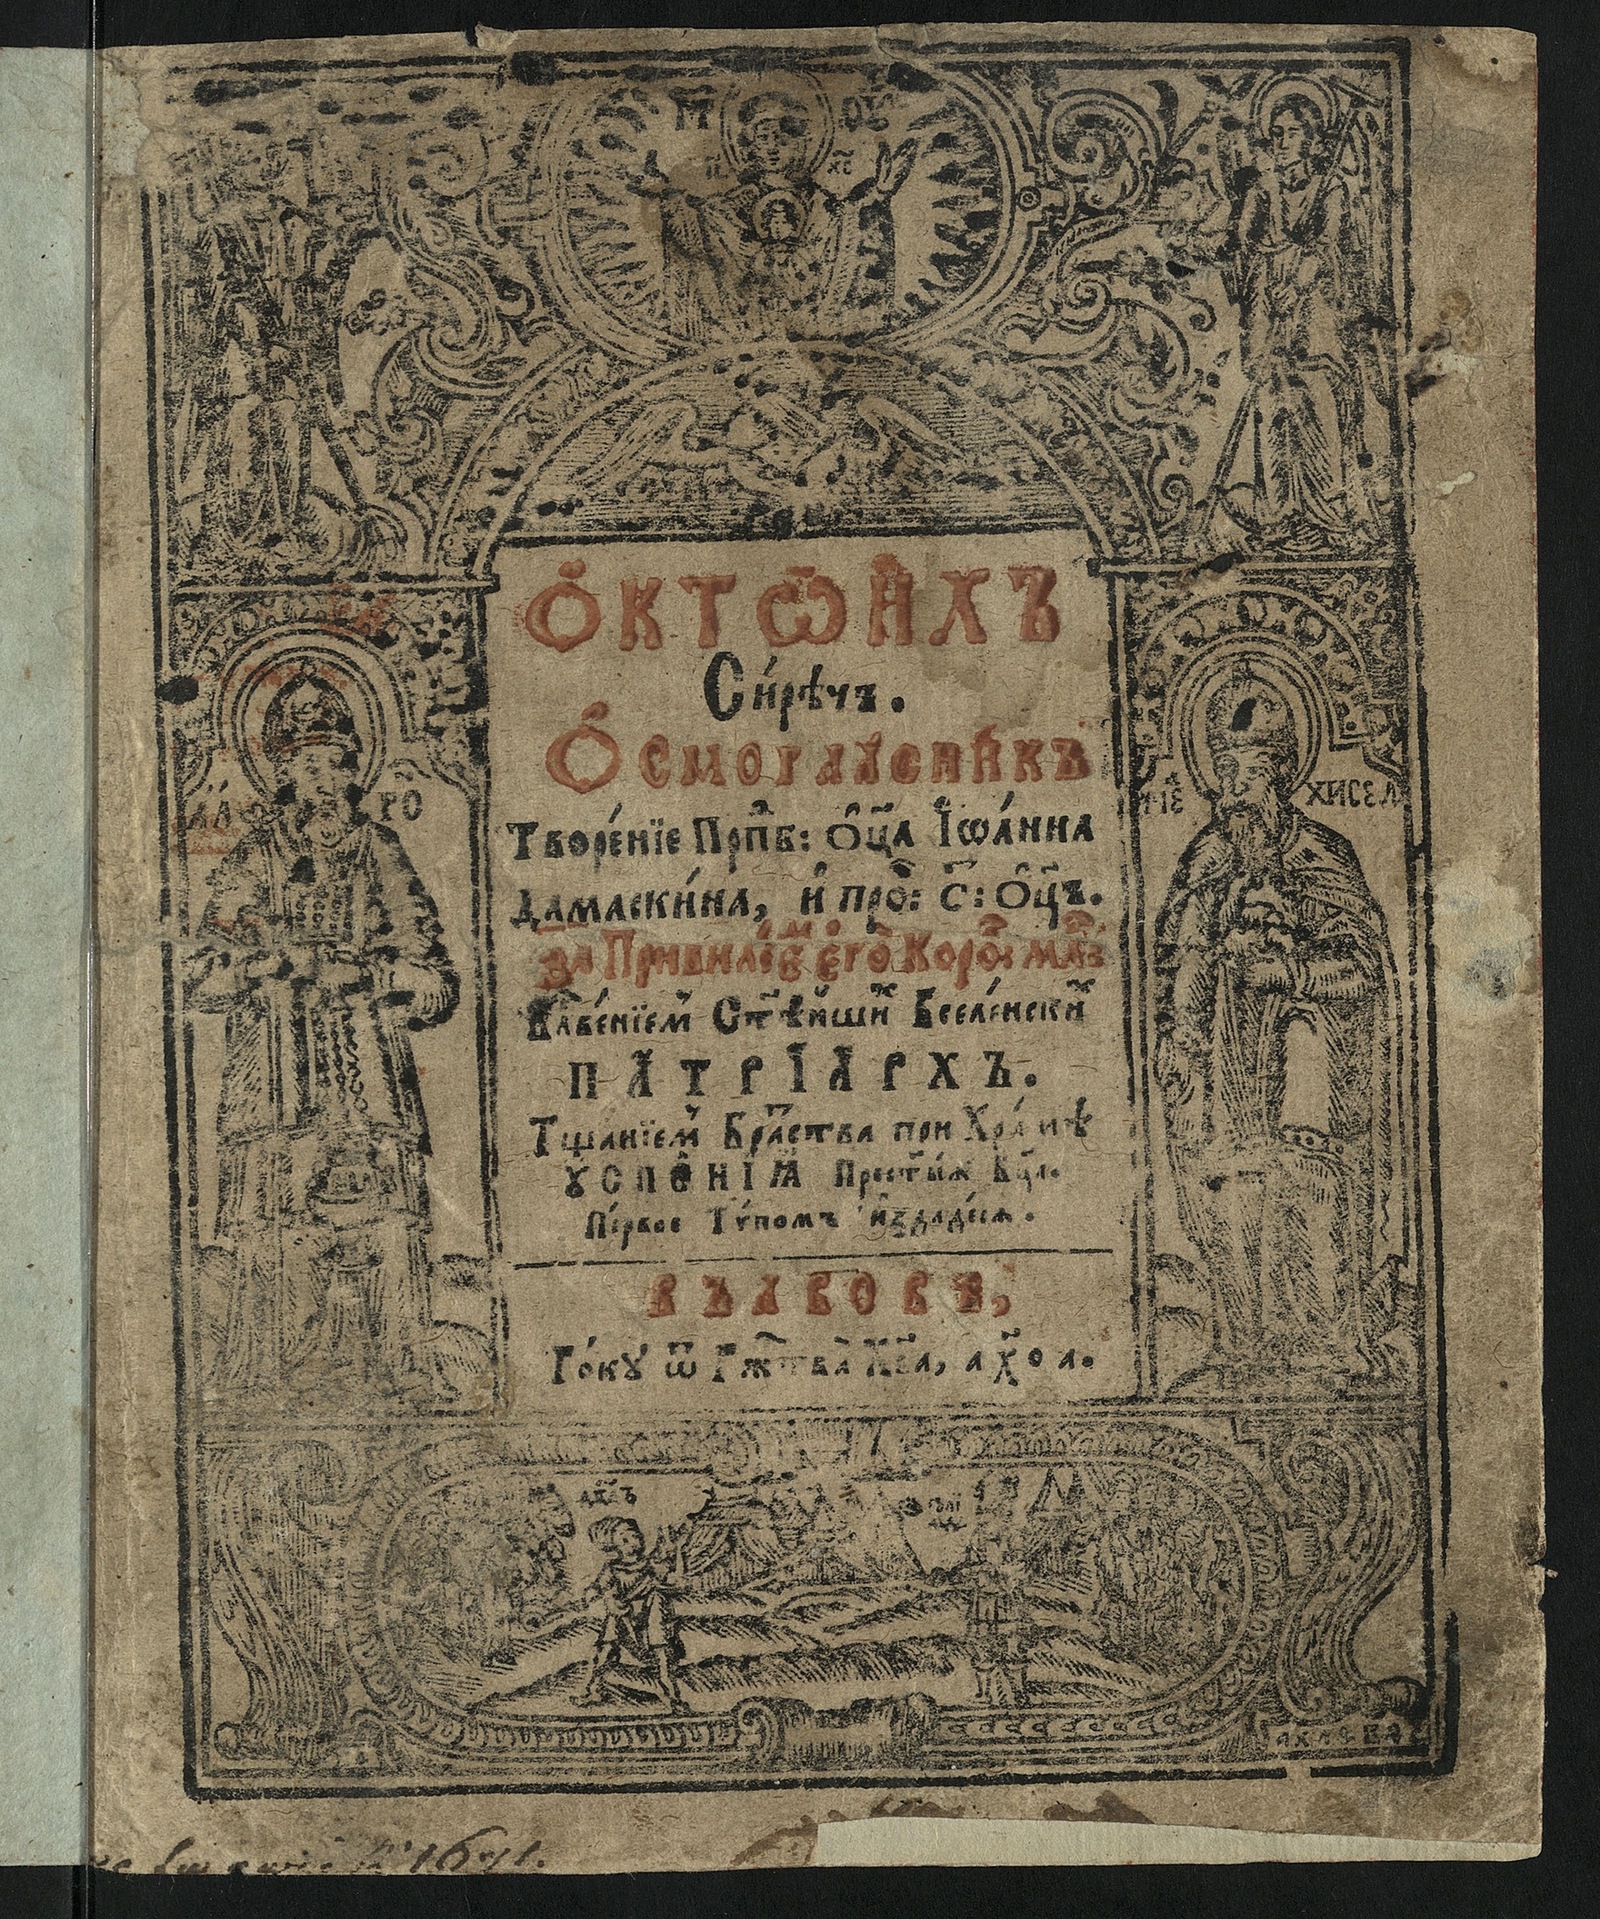 М҃Р Ѳ҃У
І҃С Х҃С
О҆КТѠ́ИХЪ
Си́рѣчъ.
О҆смогла́сникъ
Творе́нїе Прпⷣб: Ѻ҆ц҃а Іѡа́нна
Дамаски́на, и҆ проⷱ: С҃: Ѻ҆ц҃ъ.
за Привилїемъ Его Короⷧ: Млⷭ:
Блⷭве́нїемъ Ст҃ѣйшиⷯ Вселе́нскиⷯ
ПАТРІАРХЪ.
Тщанїемъ Бра́тства при Хра́мѣ
УСПЕ́НІѦ Прест҃ыѧ Бц҃а.
Пе́рвое Ту́помъ и҆здаде́сѧ.
ВЪ ЛВОВѢ,
Ро́ку ѿ Рⷤжтва̀ Хв҃а, а х҃ о а.
АА РО
МЕ ХИСЕД
1671.